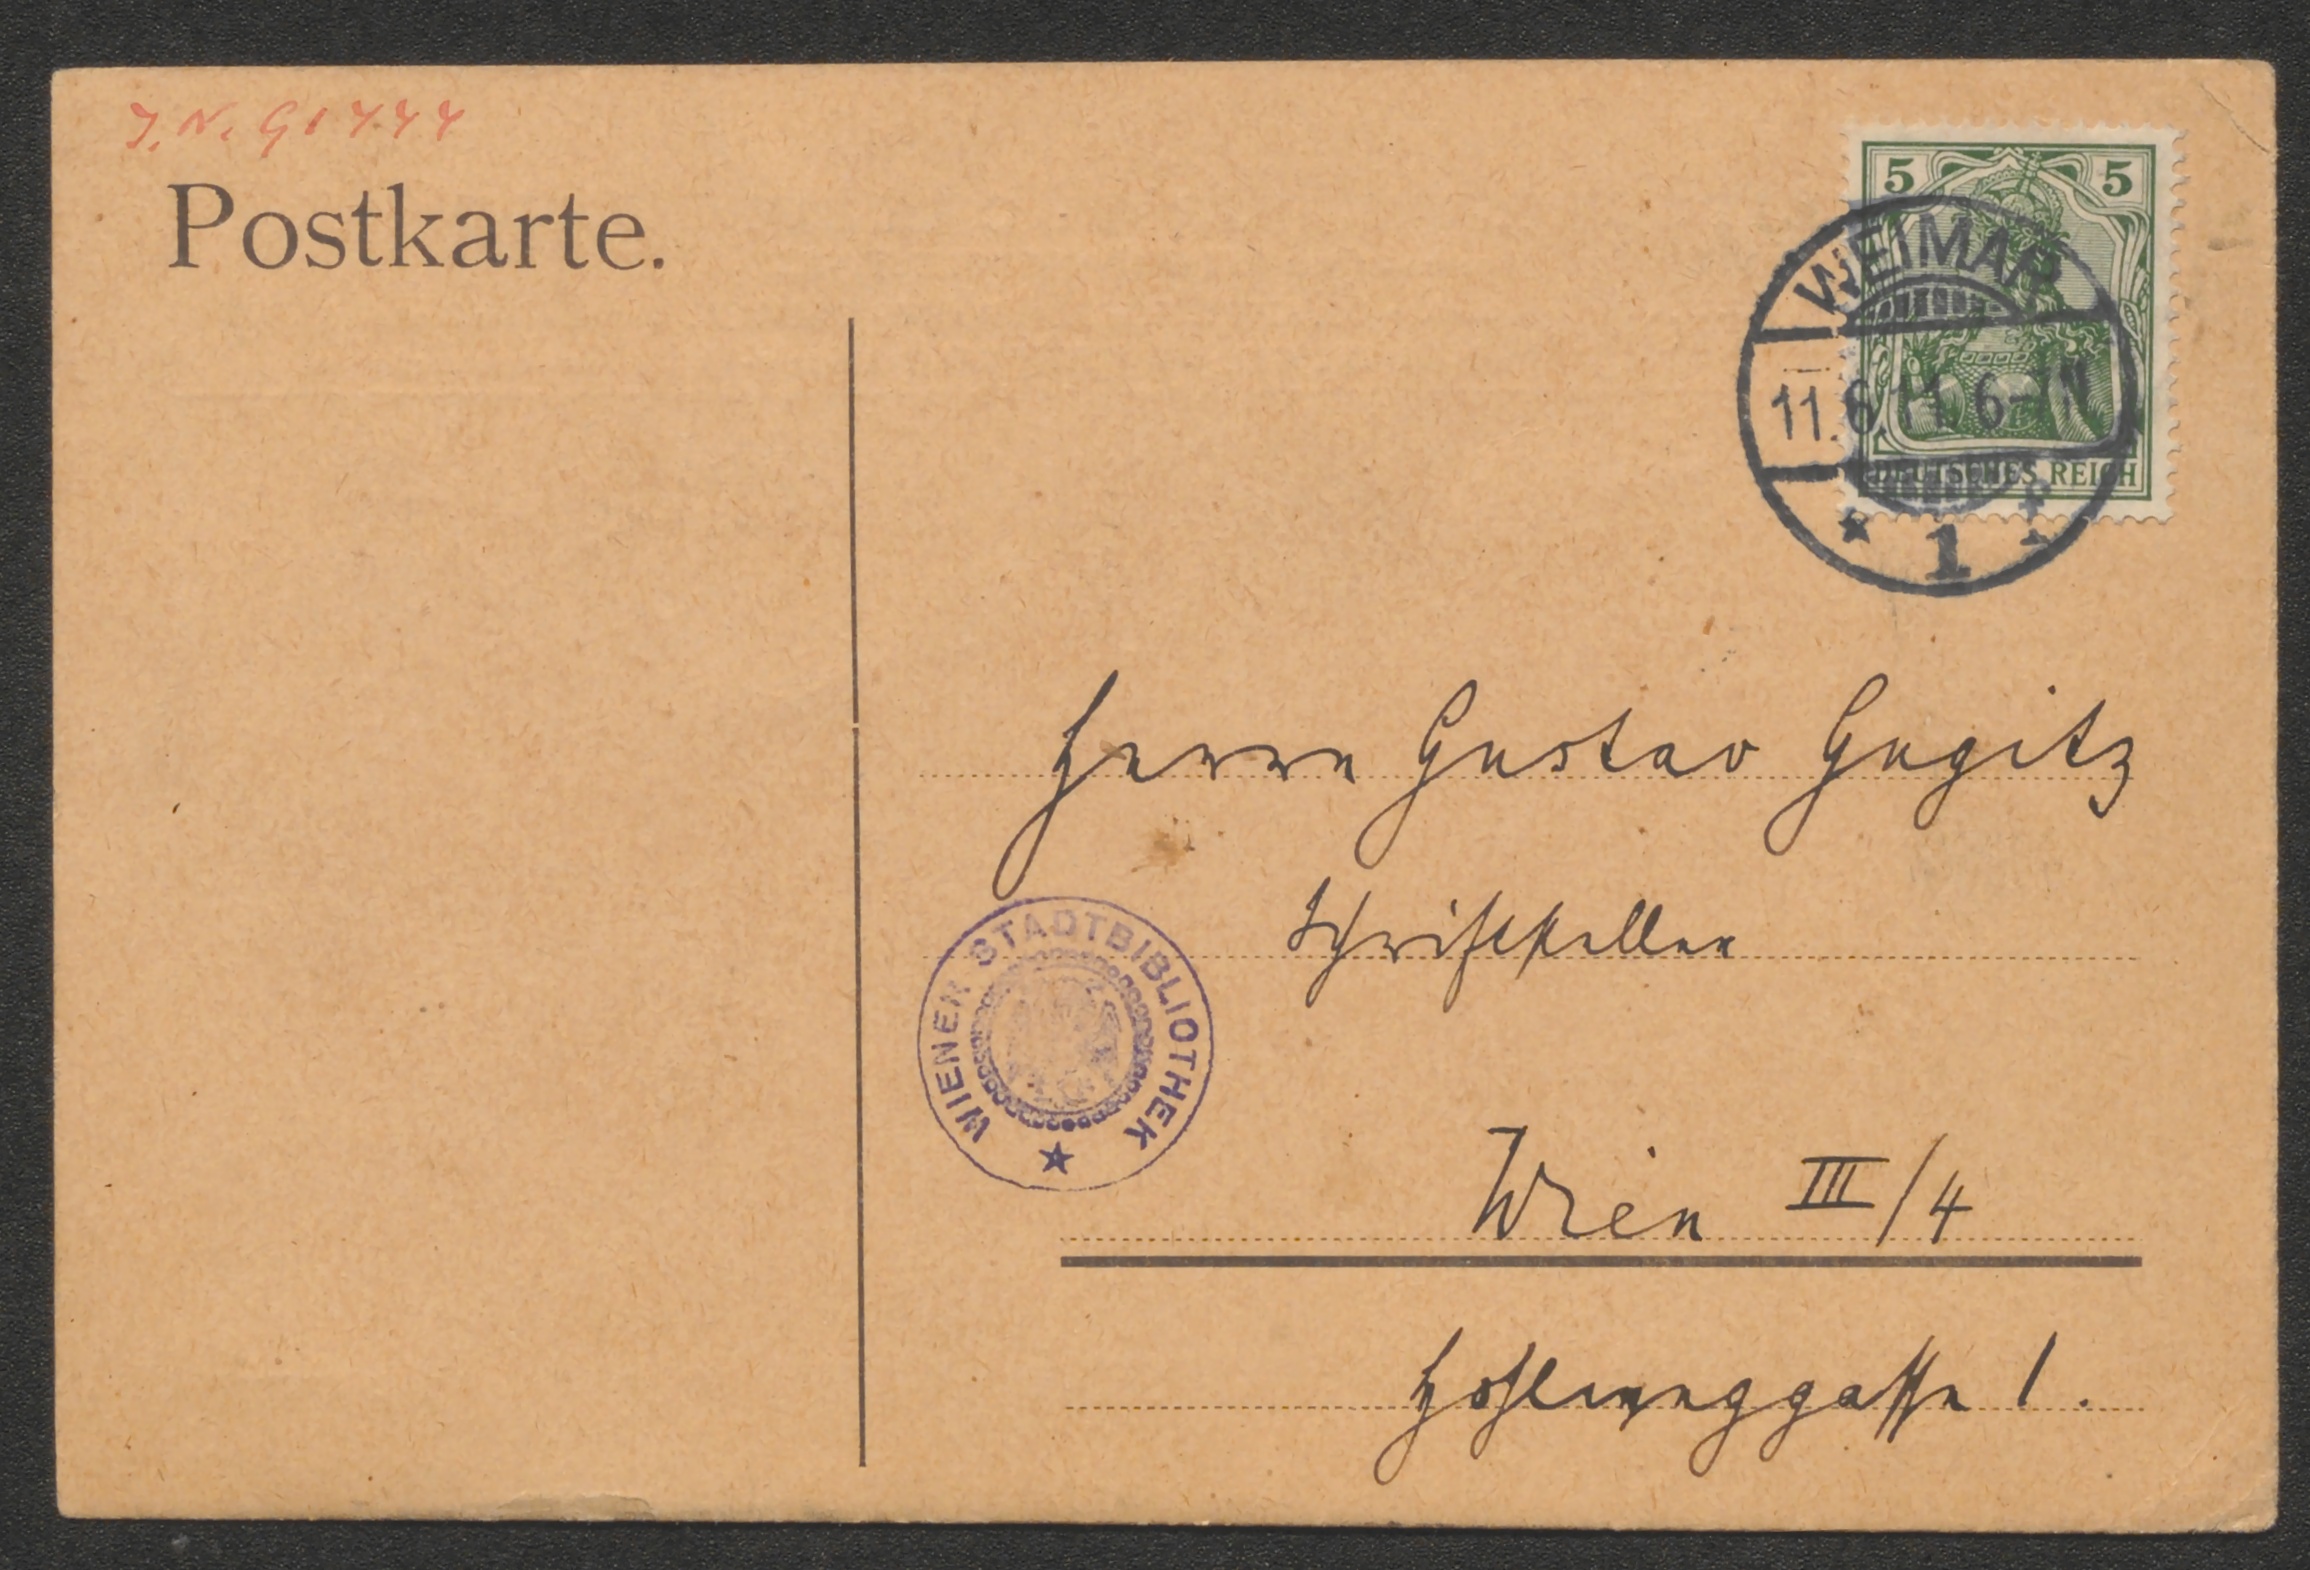 J.N. 91744
Postkarte.
5 5
WEIMAR
11.6.11. 6-7N
DEUTSCHES REICH
* 1
Herrn Gustav Gugitz
Schriftsteller
WIENER STADTBIBLIOTHEK
Wien III/4
Hohlweggasse 1.